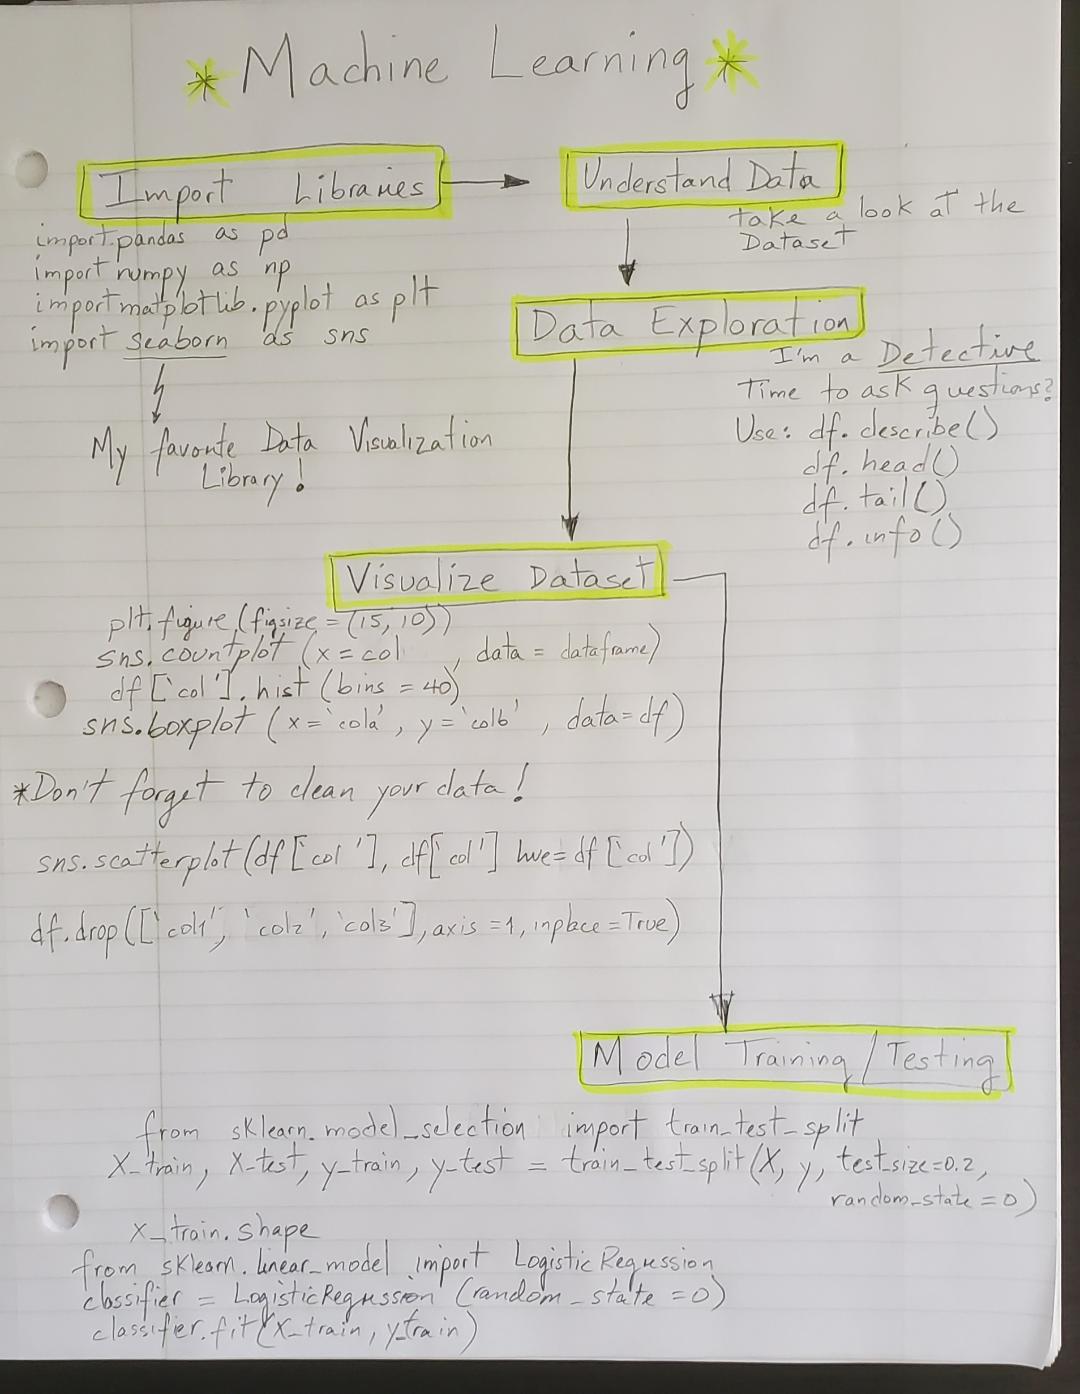 * Machine Learning *
Import Libraries
import pandas as pd
import numpy as np
import matplotlib.pyplot as plt
import seaborn as sns
My favorite Data Visualization
Library!
Understand Data
take a look at the
Dataset
Data Exploration
I'm a Detective
Time to ask questions?
Use: df.describe()
df.head()
df.tail()
df.info()
Visualize Dataset
plt.figure(figsize = (15, 10))
sns.countplot (x = col , data = dataframe)
df ['col'].hist (bins = 40)
sns.boxplot (x = 'cola', y = 'colb' , data=df)
*Don't forget to clean your data!
sns.scatterplot(df['col'], df['col'] hue=df['col'])
df.drop(['col1', 'col2', 'col3'], axis =1, inplace =True)
Model Training/Testing
from sklearn.model_selection import train_test_split
X_train, X_test, y_train, y_test = train_test_split(X, y, test_size=0.2,
random_state = 0)
X_train.shape
from sklearn.linear_model import LogisticRegression
classifier = LogisticRegression (random_state =0)
classifier.fit(X_train, y_train)